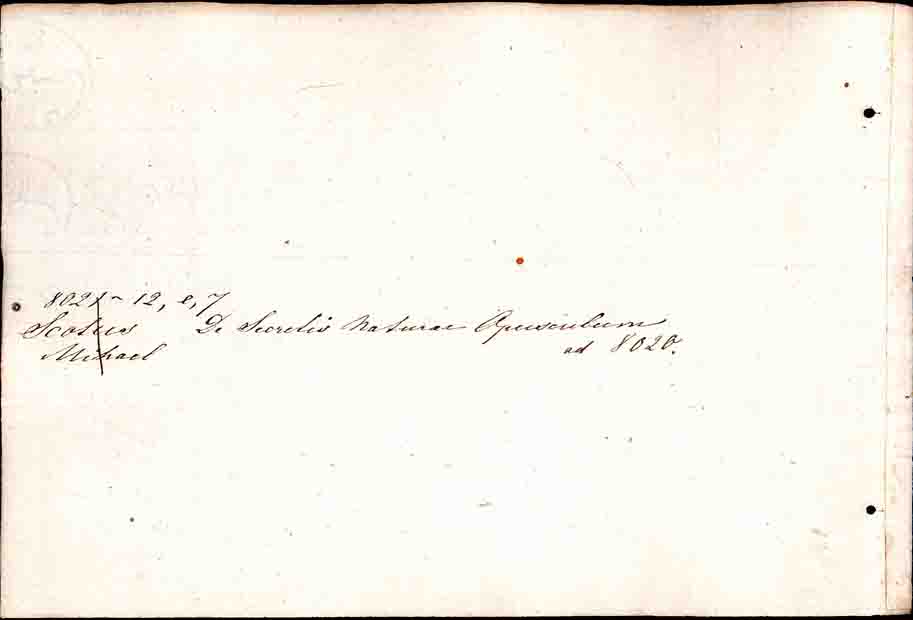 8021 ~ 12, e, 7
Scotus De Secretis Naturae Opusculum
Mihael ad 8020.